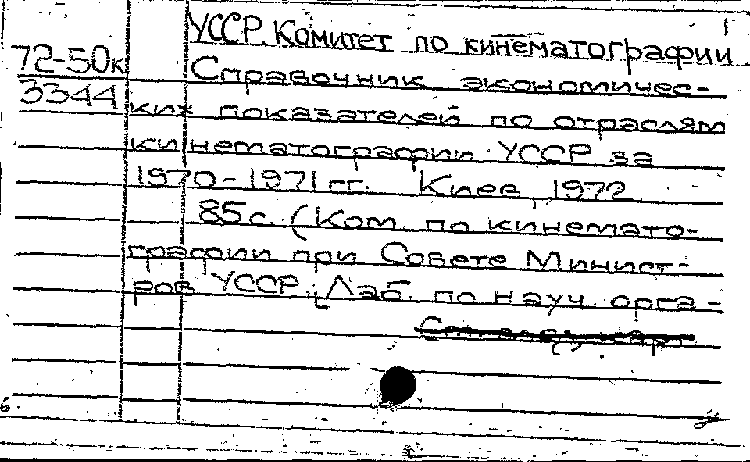 УССР. Комитет по кинематографии
72-50к
3344
Справочник экономичес-
ких показателей по отраслям
кинематографии УССР за
1970-1971 гг. Киев, 1972
85 с. (Ком. по кинемато-
графии при Совете Минист-
ров УССР. Лаб. по науч. орга-